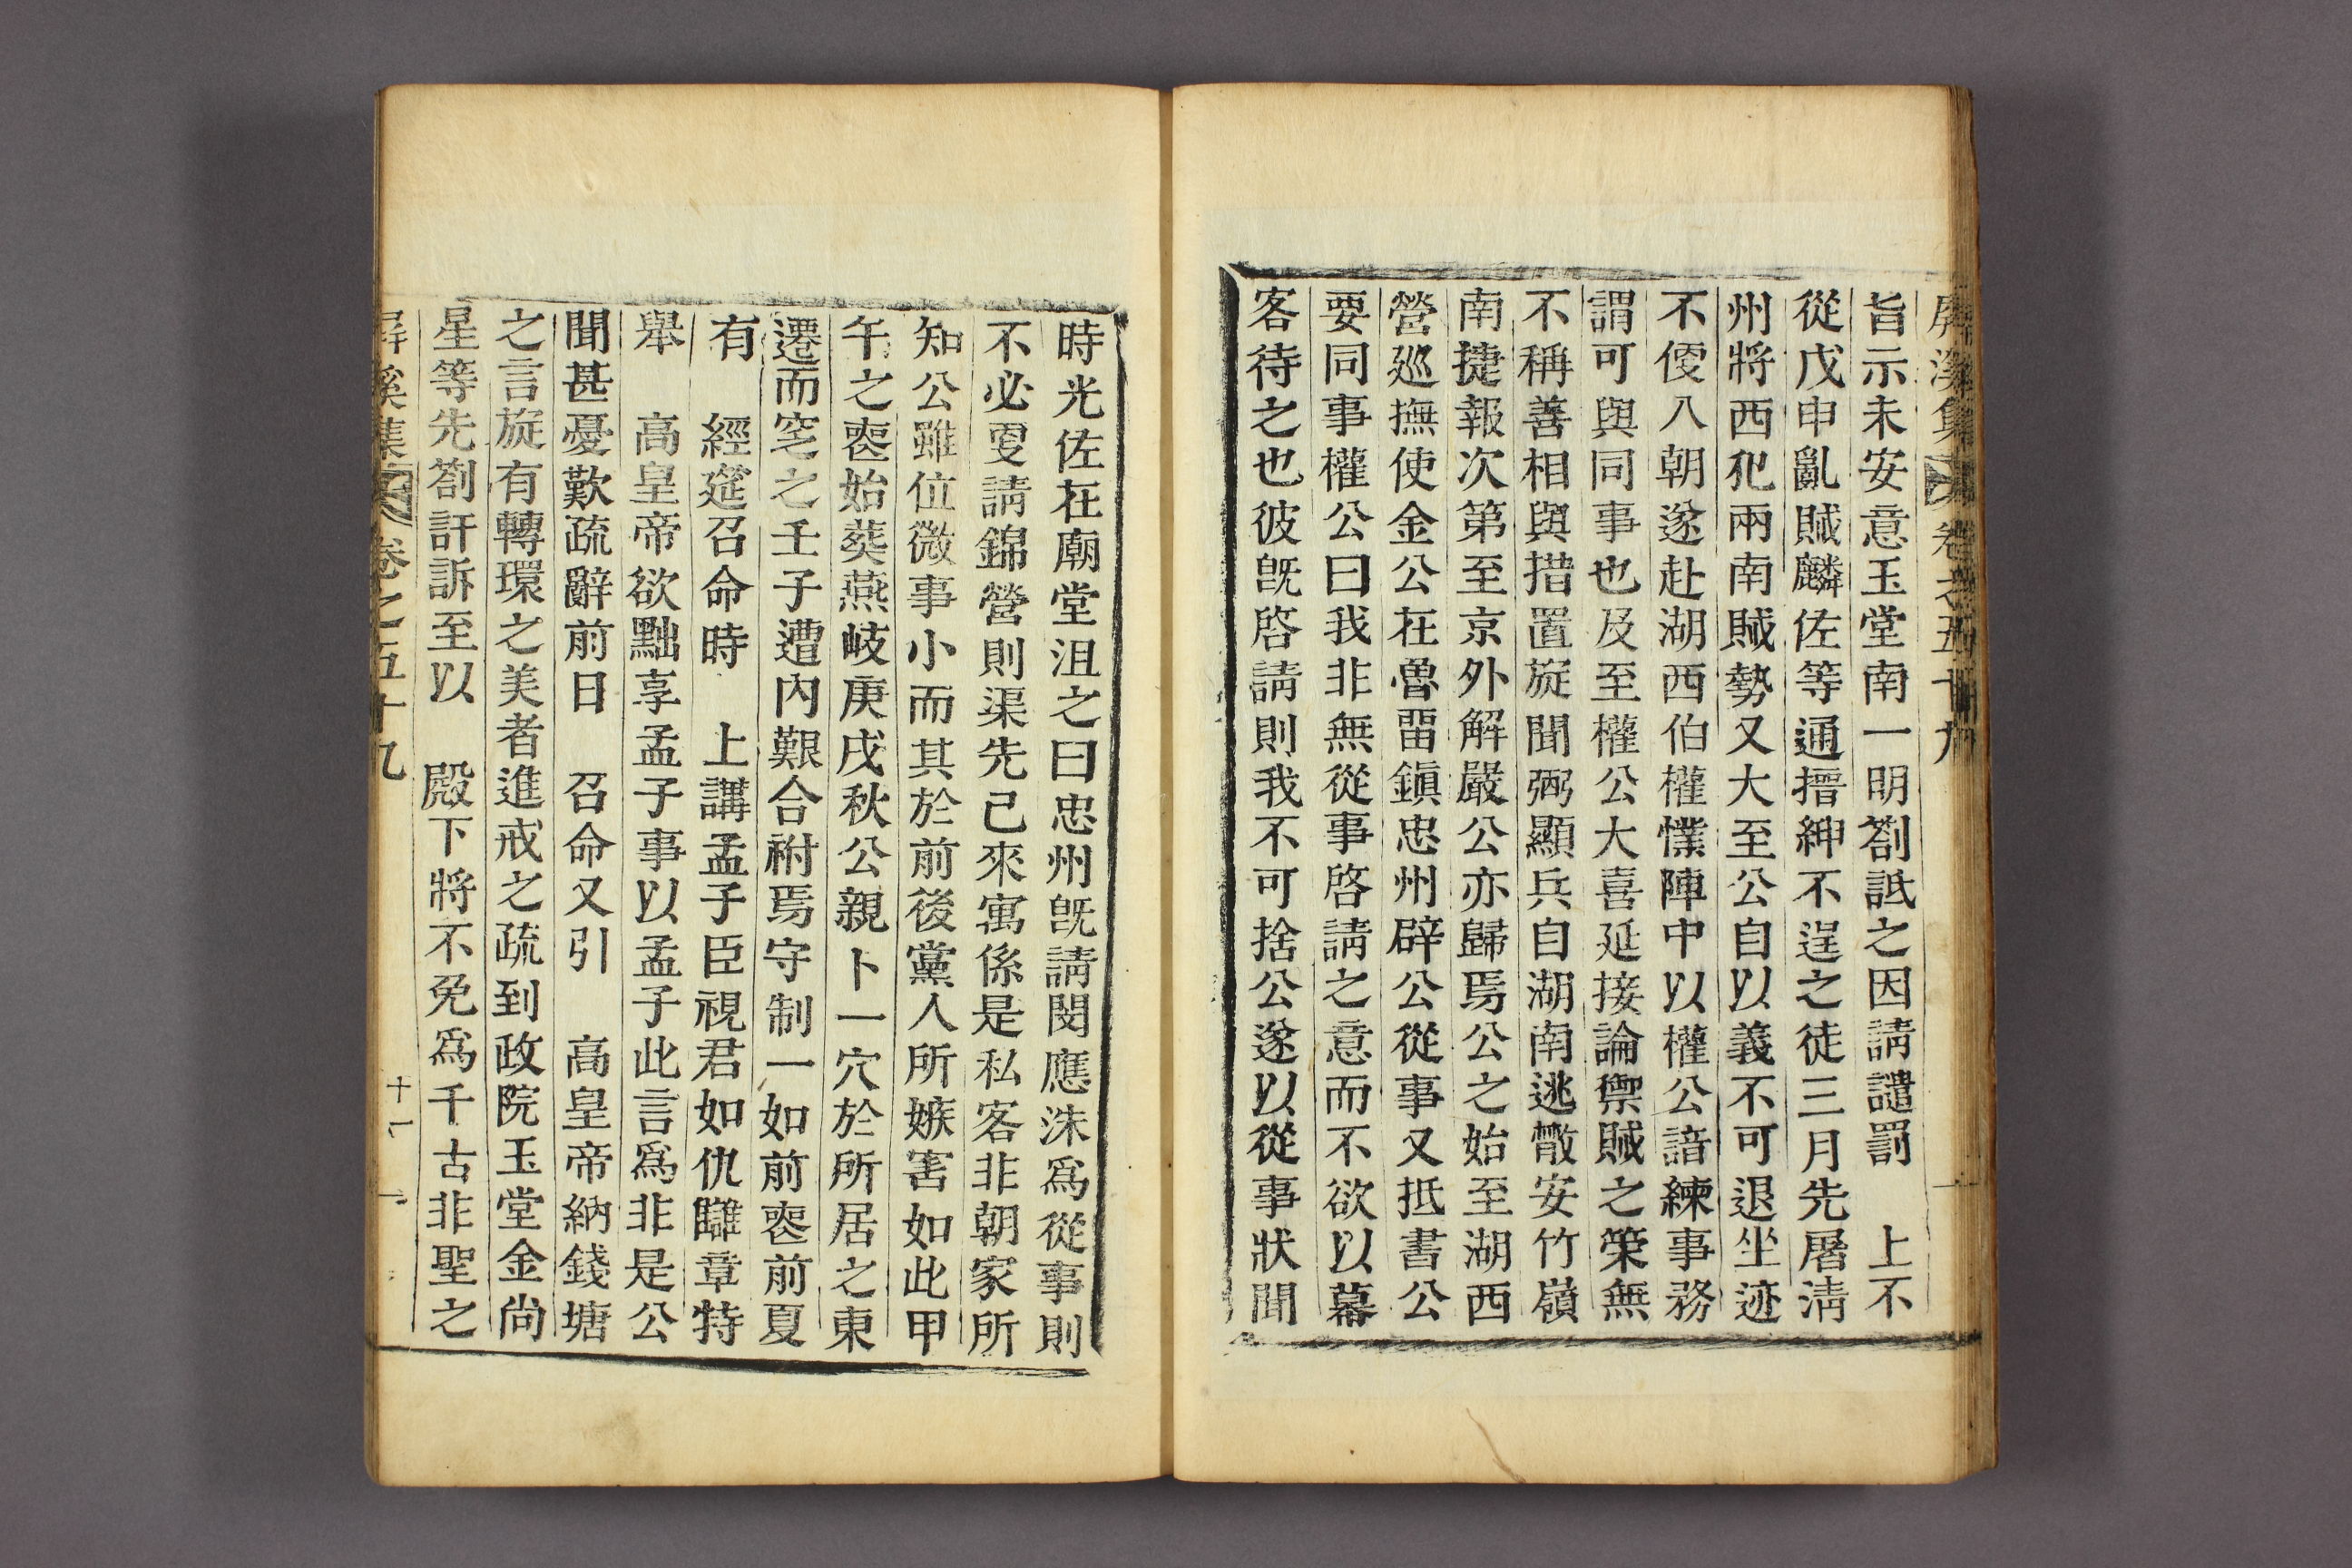 屛溪集 卷之五十九
旨示未安意玉堂南一明劄詆之因請譴罰 上不
從戊申亂賊麟佐等通搢紳不逞之徒三月先屠淸
州將西犯兩南賊勢又大至公自以義不可退坐迹
不便入朝遂赴湖西伯權𢢜陣中以權公諳練事務
謂可與同事也及至權公大喜延接論禦賊之策無
不稱善相與措置旋聞弼顯兵自湖南逃散安竹嶺
南捷報次第至京外解嚴公亦歸焉公之始至湖西
營巡撫使金公在魯留鎭忠州辟公從事又抵書公
要同事權公曰我非無從事啓請之意而不欲以幕
客待之也彼旣啓請則我不可捨公遂以從事狀聞
時光佐在廟堂沮之曰忠州旣請閔應洙爲從事則
不必更請錦營則渠先已來寓係是私客非朝家所
知公雖位微事小而其於前後黨人所嫉害如此甲
午之喪始葬燕岐庚戌秋公親卜一穴於所居之東
遷而窆之壬子遭內艱合祔焉守制一如前喪前夏
有 經筵召命時 上講孟子臣視君如仇讎章特
舉 高皇帝欲黜享孟子事以孟子此言爲非是公
聞甚憂歎疏辭前日 召命又引 高皇帝納錢塘
之言旋有轉環之美者進戒之疏到政院玉堂金尙
星等先劄訐訴至以 殿下將不免爲千古非聖之
屛溪集 卷之五十九 十一